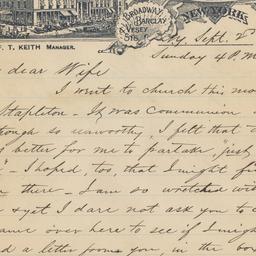 F. T. KEITH MANAGER.
BROADWAY
BARCLAY
VESEY
STS.
NEW YORK,
Sept. 2d
Sunday 4 P.M
dear Wife
I went to church this mo
Stapleton - It was communion
ough so unworthy, I felt that
better for me to partake "just
" - I hoped, too, that I might fi
there - I am so wretched wit
& yet I dare not ask you to
ame over here to see if I migh
d a letter from you, in the bo